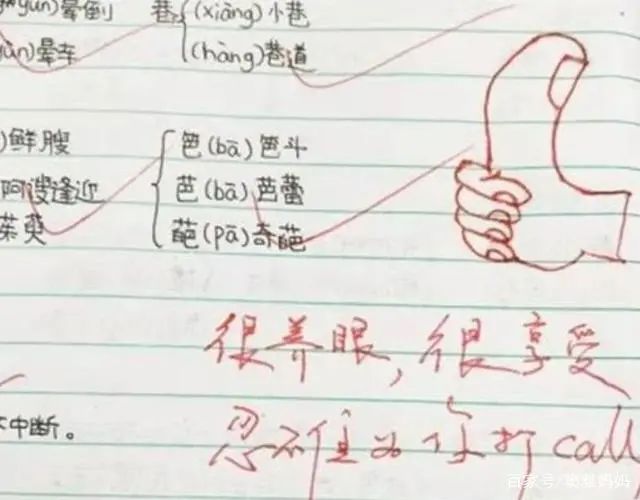 yùn)晕倒 巷 (xiàng)小巷
yùn)晕车 (hàng)巷道
)鲜膄 笆(bā)笆斗
阿谀逢迎 芭(bā)芭蕾
茱萸 葩(pā)奇葩
很养眼,很享受
不中断。 忍不住为你打call
百家号/